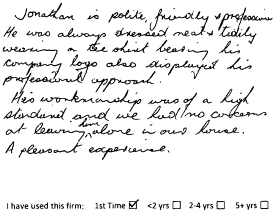 Jonathan is polite, friendly & profession
He was always dressed neat & tidily
wearing a tee shirt bearing his
company logo also displayed his
professional approach.
His workmanship was of a high
standard and we had no concerns
at leaving him alone in our house.
A pleasant experience.
I have used this firm: 1st Time ☑ <2 yrs ☐ 2-4 yrs ☐ 5+ yrs ☐